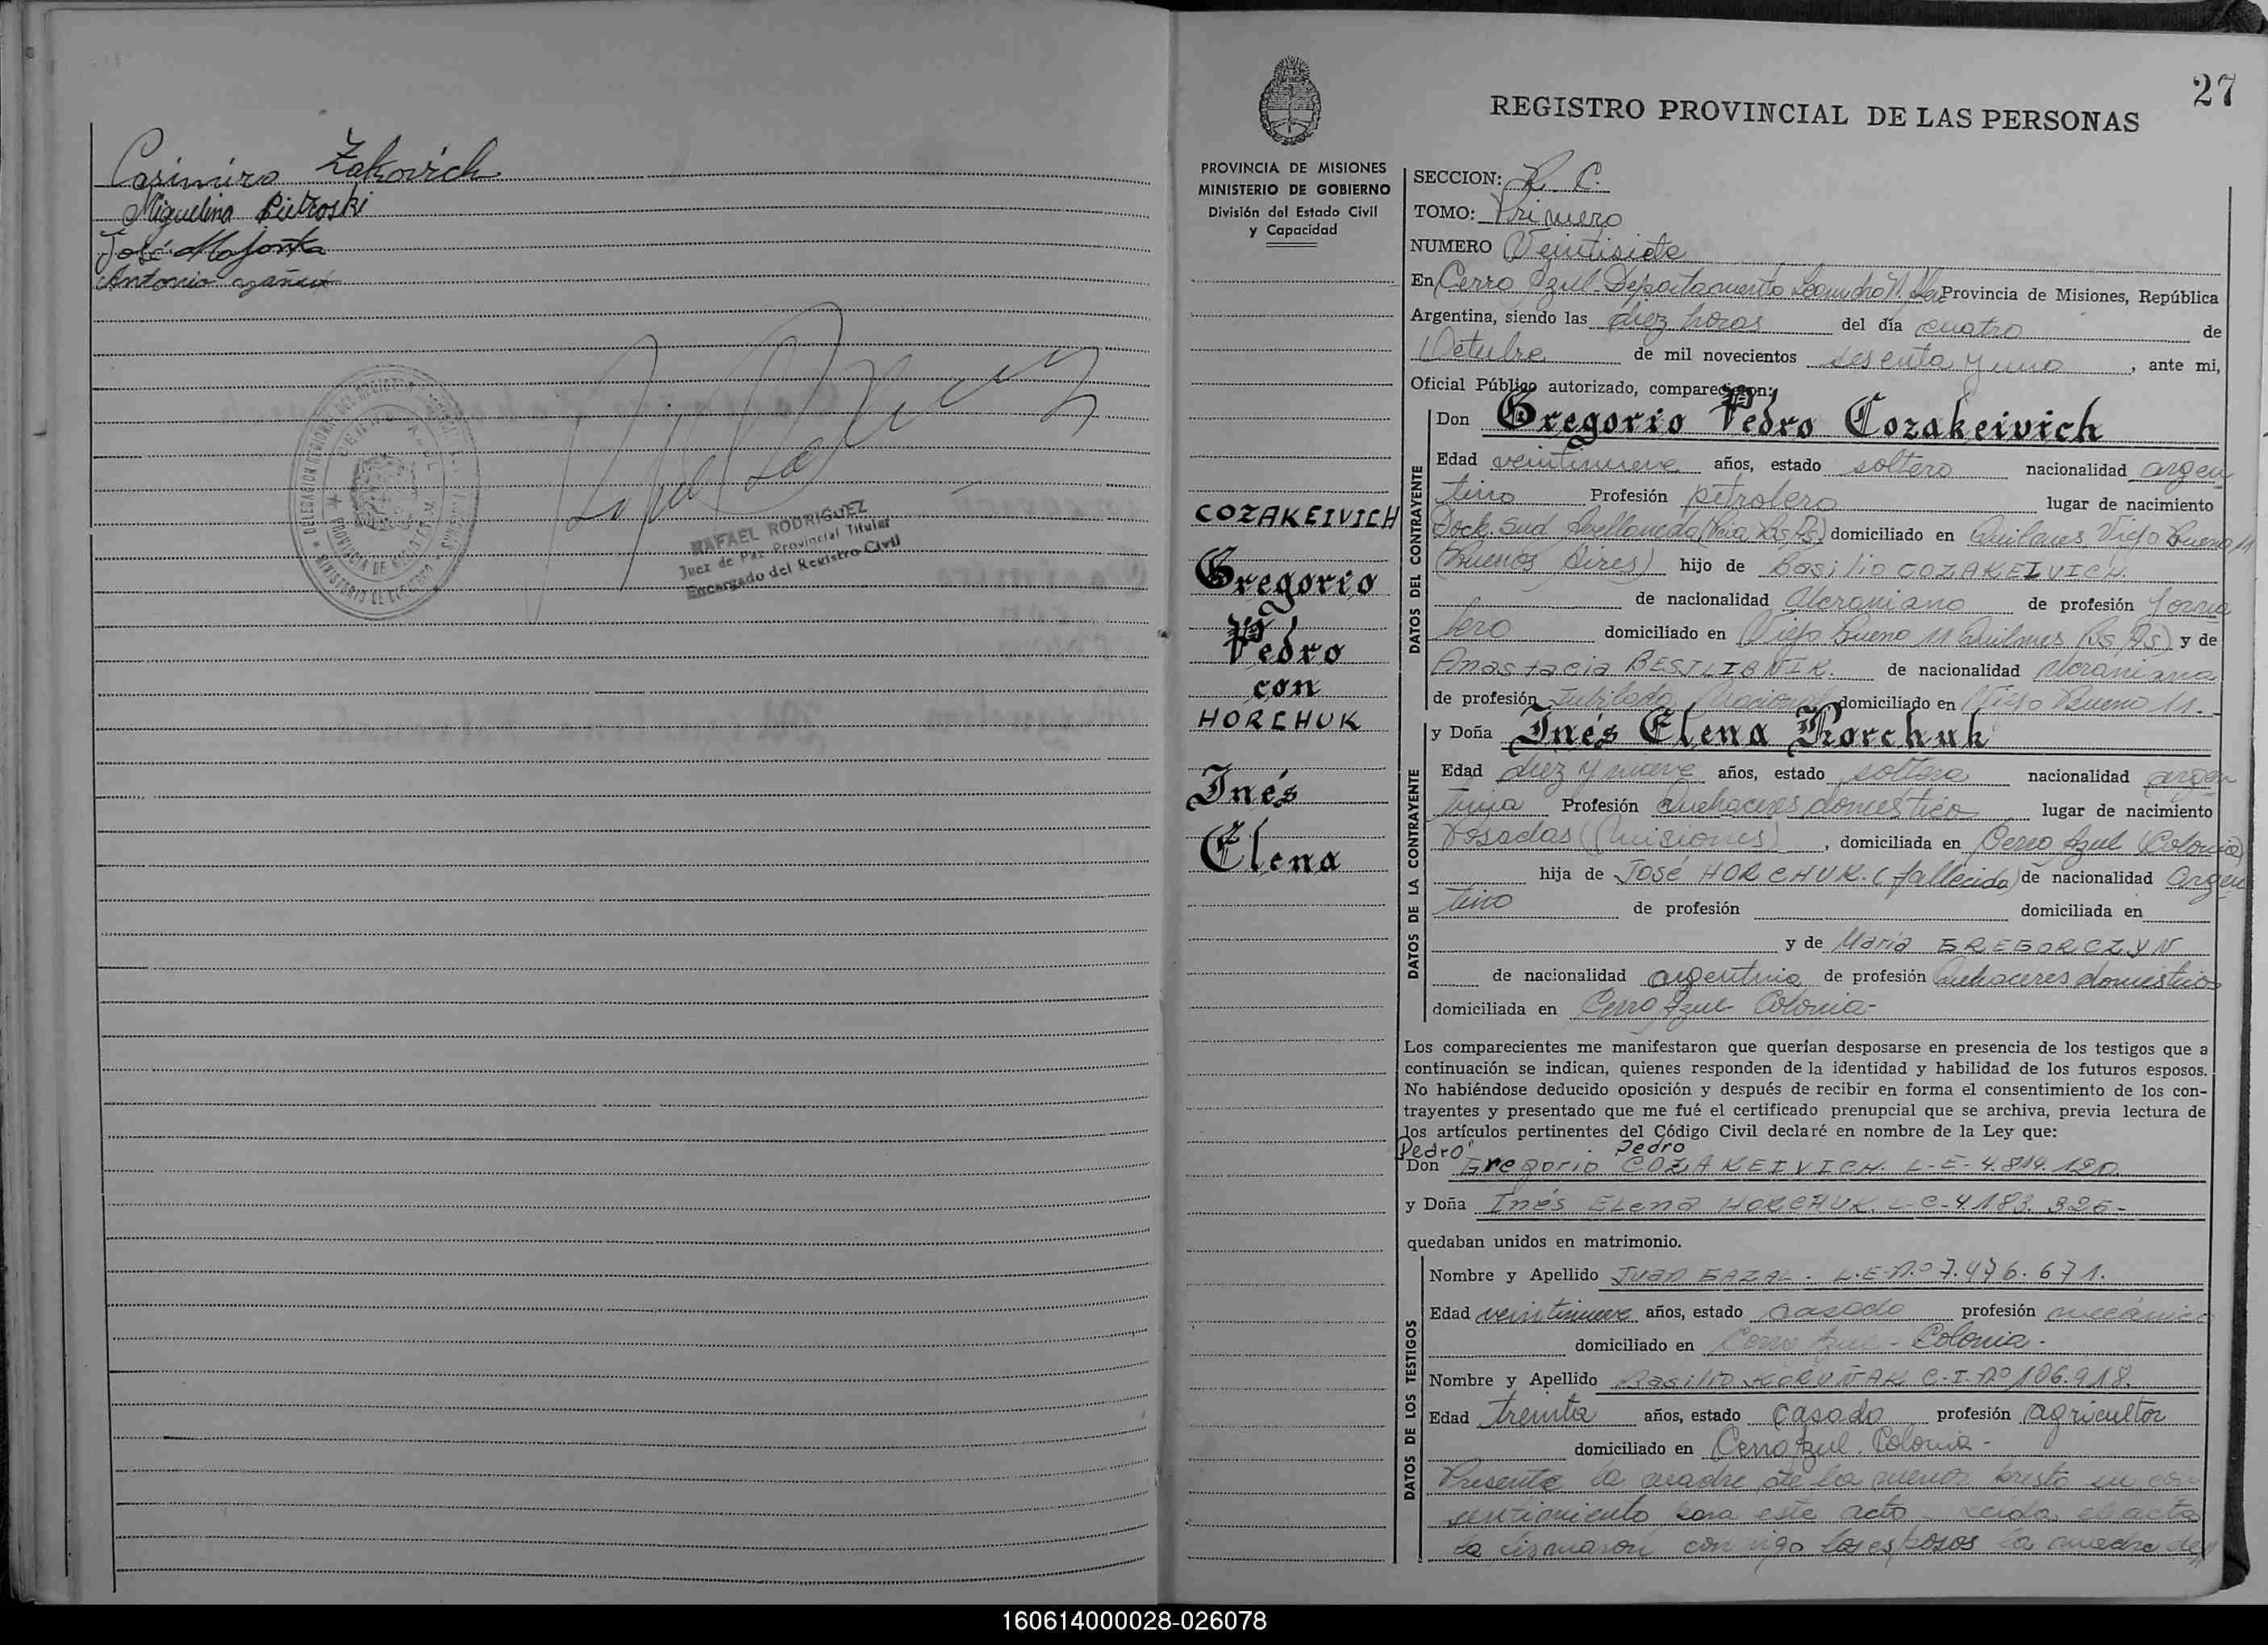 Casimiro Zakovich
Miguelina Pietroski
José
Antonio
RAFAEL RODRIGUEZ
Juez de Paz Provincial Titular
Encargado del Registro Civil
27
REGISTRO PROVINCIAL DE LAS PERSONAS
PROVINCIA DE MISIONES
MINISTERIO DE GOBIERNO
División del Estado Civil
y Capacidad
COZAKEIVICH
Gregorio
Pedro
con
HORCHUK
Inés
Elena
SECCION: R. C.
TOMO: Primero
NUMERO Veintisiete
En Cerro Azul - Departamento Leandro N. Alem Provincia de Misiones, República
Argentina, siendo las diez horas del día cuatro de
Octubre de mil novecientos sesenta y uno, ante mi,
Oficial Público autorizado, comparecieron:
DATOS DEL CONTRAYENTE
Don Gregorio Pedro Cozakeivich
Edad veintinueve años, estado soltero nacionalidad argen
tino Profesión petrolero lugar de nacimiento
Dock. Sud Avellaneda (Pcia Bs. As) domiciliado en Quilmes, Viejo Bueno 11
(Buenos Aires) hijo de Basilio COZAKEIVICH.
de nacionalidad Ucraniano de profesión Jorna
lero domiciliado en Viejo Bueno 11 Quilmes (Bs As) y de
Anastacia BESILIBNIK. de nacionalidad Ucraniana
de profesión Jubilada Nacional domiciliado en Viejo Bueno 11.-
DATOS DE LA CONTRAYENTE
y Doña Inés Elena Horchuk
Edad diez y nueve años, estado soltera nacionalidad argen
tina Profesión Quehaceres domestico lugar de nacimiento
Posadas (Misiones), domiciliada en Cerro Azul (Colonia)
hija de José HORCHUK. (fallecido) de nacionalidad argen
tino de profesión domiciliada en
y de María GREGORCZYN
de nacionalidad argentina de profesión Quehaceres domestico
domiciliada en Cerro Azul Colonia-
Los comparecientes me manifestaron que querían desposarse en presencia de los testigos que a
continuación se indican, quienes responden de la identidad y habilidad de los futuros esposos.
No habiéndose deducido oposición y después de recibir en forma el consentimiento de los con-
trayentes y presentado que me fué el certificado prenupcial que se archiva, previa lectura de
los artículos pertinentes del Código Civil declaré en nombre de la Ley que:
Pedro" Pedro
Don Gregorio COZAKEIVICH. L-E- 4.814.120
y Doña Inés Elena HORCHUK. L-C-4.183.326-
quedaban unidos en matrimonio.
DATOS DE LOS TESTIGOS
Nombre y Apellido Juan GAZAL. L.E.nº 7.476.671.
Edad veintinueve años, estado casado profesión mecánico
domiciliado en Cerro Azul - Colonia-
Nombre y Apellido Basilio KORUÑAK C.I.nº 106.918.
Edad treinta años, estado casado profesión agricultor
domiciliado en Cerro Azul. Colonia-
Presente la madre de la menor presta su con
sentimiento para este acto. Leida el acta
la firmaron conmigo los esposos la madre de
160614000028-026078